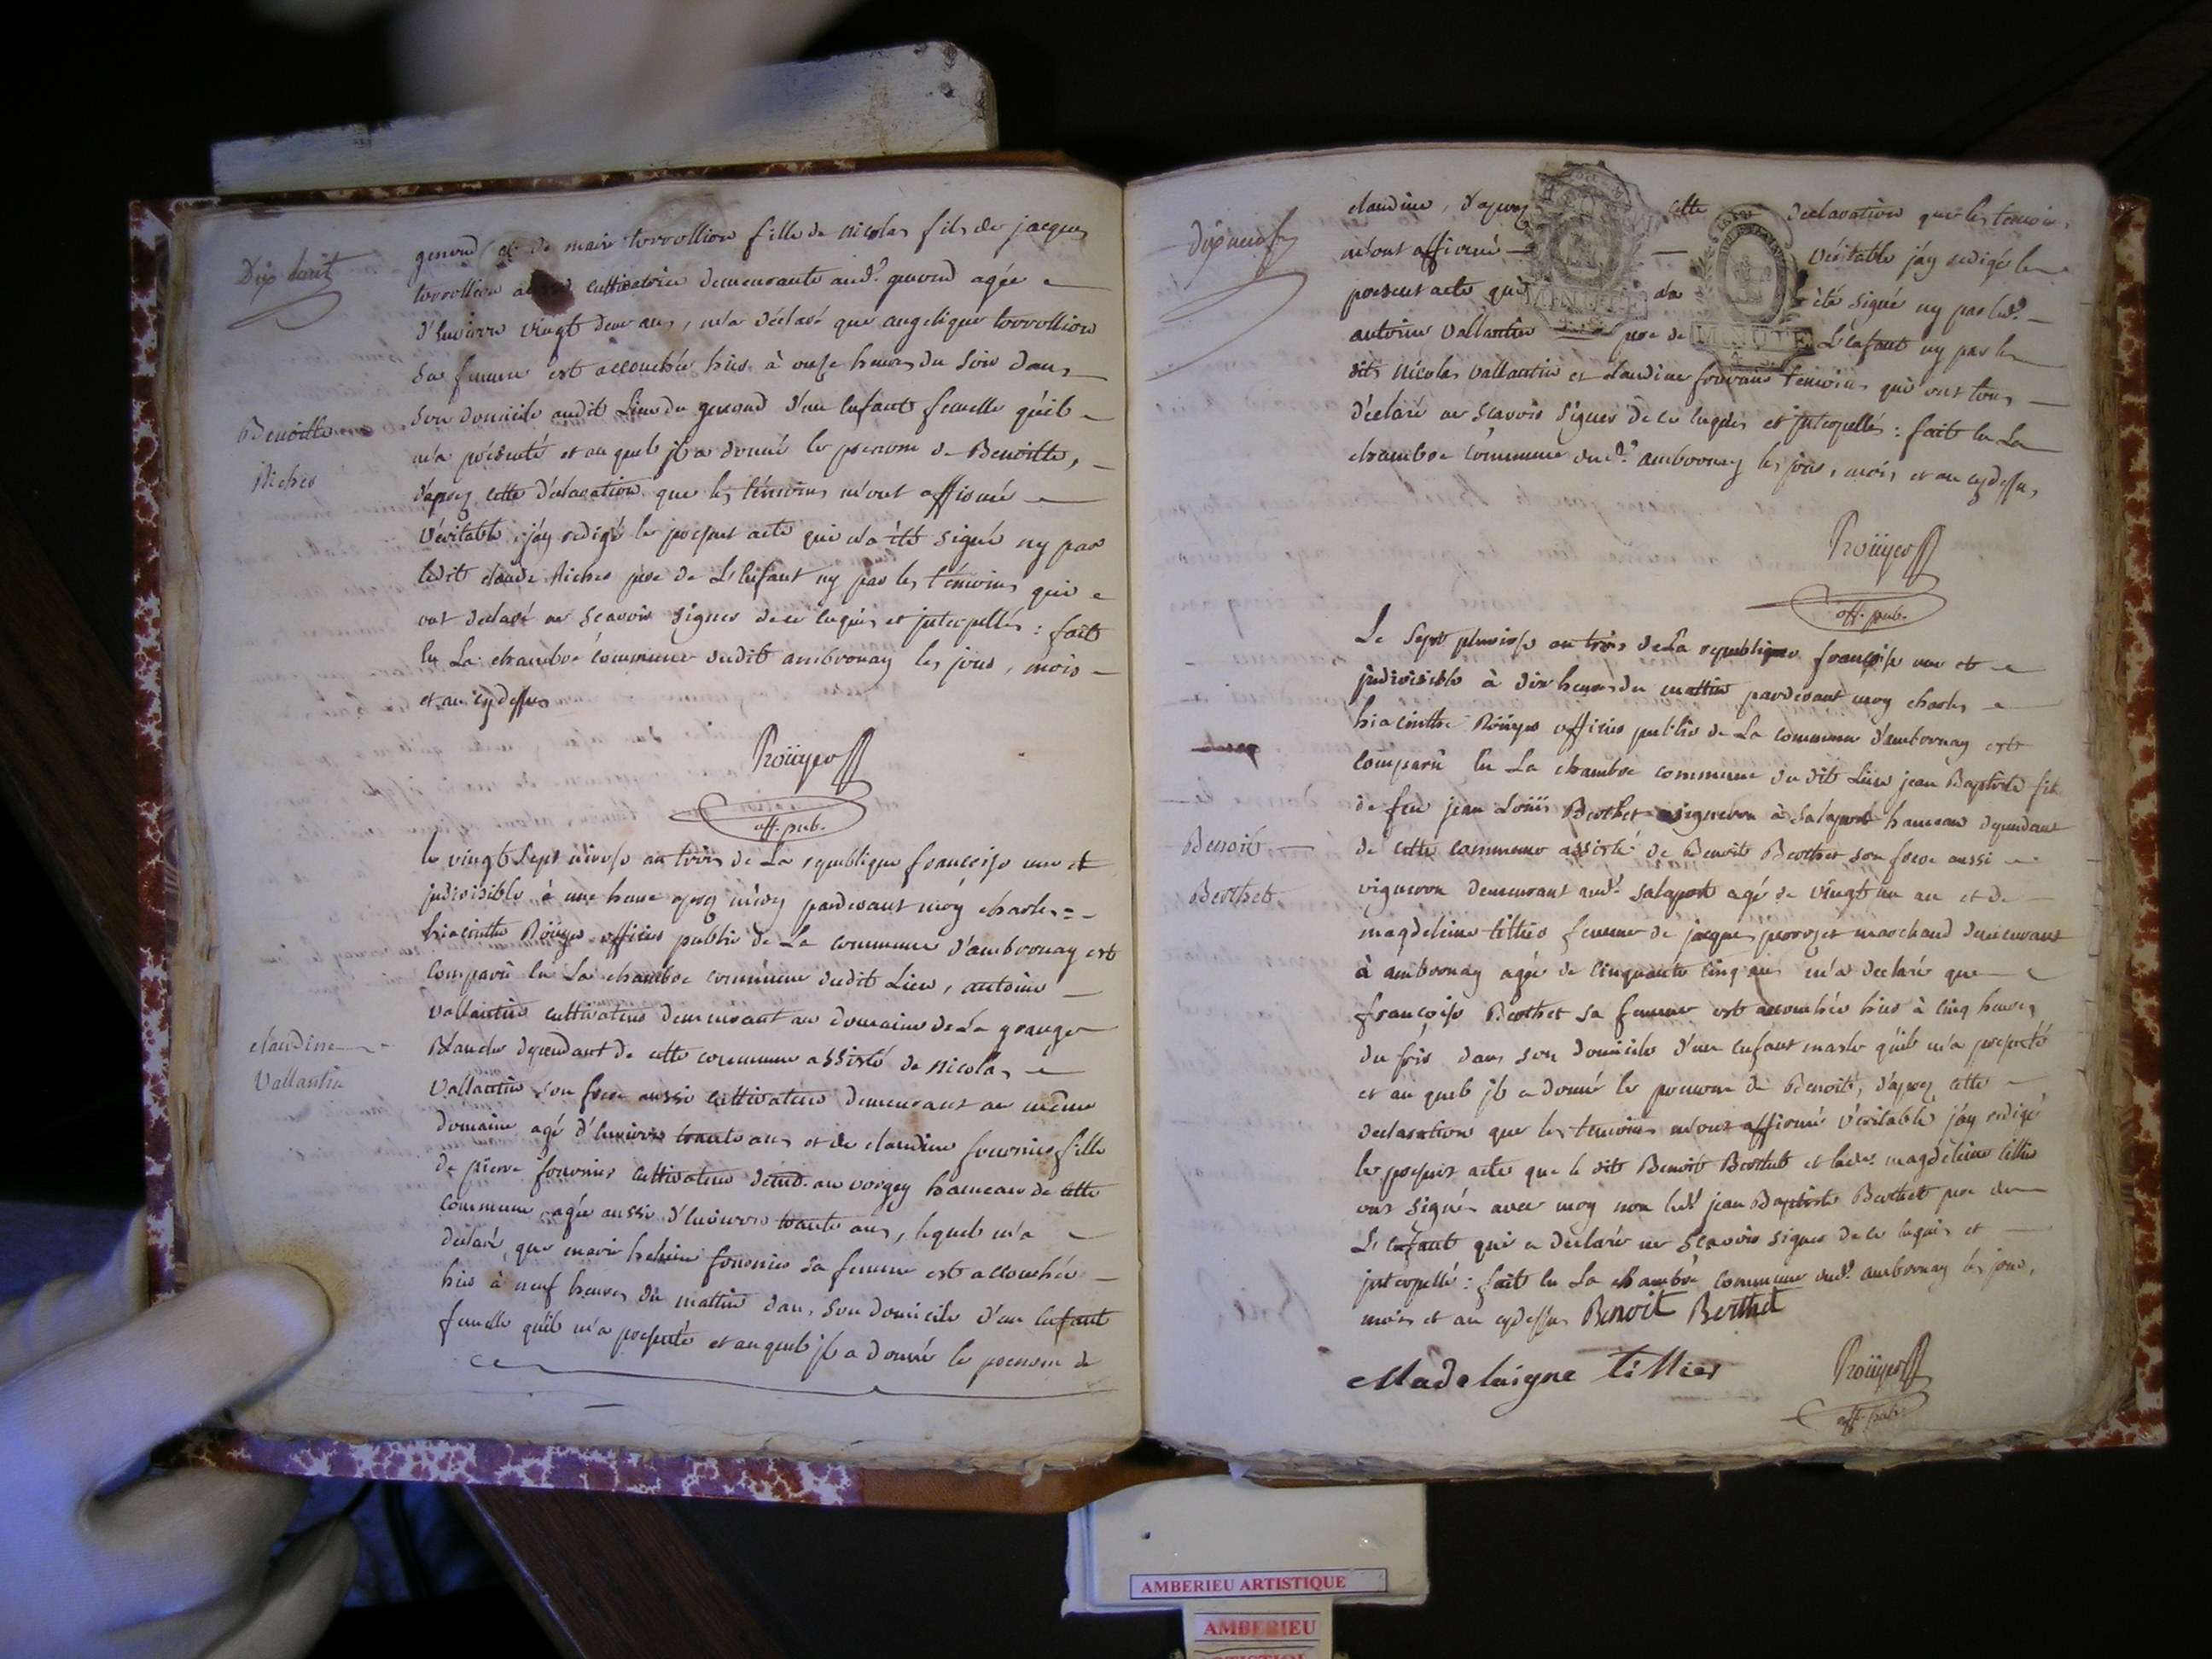 Dix huit
genoud et de marie torrollion fille de nicolas fils de jacques
torrollion cultivatrice demeurante aud.^t genoud agée
d'Environ vingt deux ans, m'a déclaré que angelique torrollion
sa femme est accouchée hier à onze heures du soir dans
son domicile audit Lieu de genoud d'un enfant femelle qu'il
Benoitte
m'a présenté et au quel il a donné le prenom de Benoitte,
Richer
d'aprez cette déclaration que les témoins m'ont affirmé
véritable, j'ay redigé le present acte qui n'a été signé ny par
ledit claude Richer pere de L'enfant ny par les témoins qui
ont declaré ne scavoir signer de ce enquis et interpellés : fait
en La chambre commune dudit ambronay les jour, mois
et an cydessus
Roüyer
off. pub.
le vingt sept nivose an trois de La republique françoise une et
indivisible à une heure aprez midy pardevant moy charles =
hiacinthe Roüyer officier public de La commune d'ambronay est
comparu en La chambre commune dudit Lieu, antoine
vallantin cultivateur demeurant au domaine de La grange
claudine
Blanche dependant de cette commune assisté de nicolas
Vallantin
vallantin son frere aussi cultivateur demeurant au même
domaine agé d'Environ trante ans et de claudine fournier fille
de pierre fournier cultivateur demt. au vorgey hameau de cette
commune, agée aussi d'Environ trante ans, lequel m'a
declaré, que marie fournier sa femme est accouchée
hier à neuf heures du mattin dans son domicile d'un enfant
femelle qu'il m'a presenté et auquel il a donné le prenom de
Dix neuf
claudine, d'aprez cette declaration que les temoins
m'ont affirmé véritable j'ay redigé le
present acte qui n'a été signé ny par led.^t
antoine vallantin pere de L'enfant ny par les
MINUTE
MINUTE
dits nicolas vallantin et claudine fournier temoins qui ont tous
déclaré ne scavoir signer de ce enquis et interpellés : fait en La
chambre commune dud.^t ambronay les jour, mois et an cydessus
Roüyer
off. pub.
Le sept pluviose an trois de La republique françoise une et
indivisible à dix heures du mattin pardevant moy charles
hiacinthe Roüyer officier public de La commune d'ambronay est
comparu en La chambre commune du dit Lieu jean Baptiste fils
de feu jean Loüis Berthet vigneron à Salaport hameau dependant
Benoit
de cette commune assisté de Benoit Berthet son frere aussi
Berthet
vigneron demeurant aud.^t Salaport agé de vingt un an et de
magdeleine tillier femme de jacques perroset marchand demeurant
à ambronay agée de cinquante cinq ans m'a declaré que
françoise Berthet sa femme est accouchée hier à cinq heures
du soir dans son domicile d'un enfant masle qu'il m'a presenté
et au quel il a donné le prenom de Benoit, d'aprez cette
declaration que les temoins m'ont affirmé véritable j'ay redigé
le present acte que le dit Benoit Berthet et lad.^e magdeleine tillier
ont signé avec moy non led.^t jean Baptiste Berthet pere de
L'enfant qui a declaré ne scavoir signer de ce enquis et
interpellé : fait en La chambre commune dud.^t ambronay les jour,
mois et an cydessus Benoit Berthet
Madelaigne tillier
Roüyer
off. pub.
AMBERIEU ARTISTIQUE
AMBERIEU